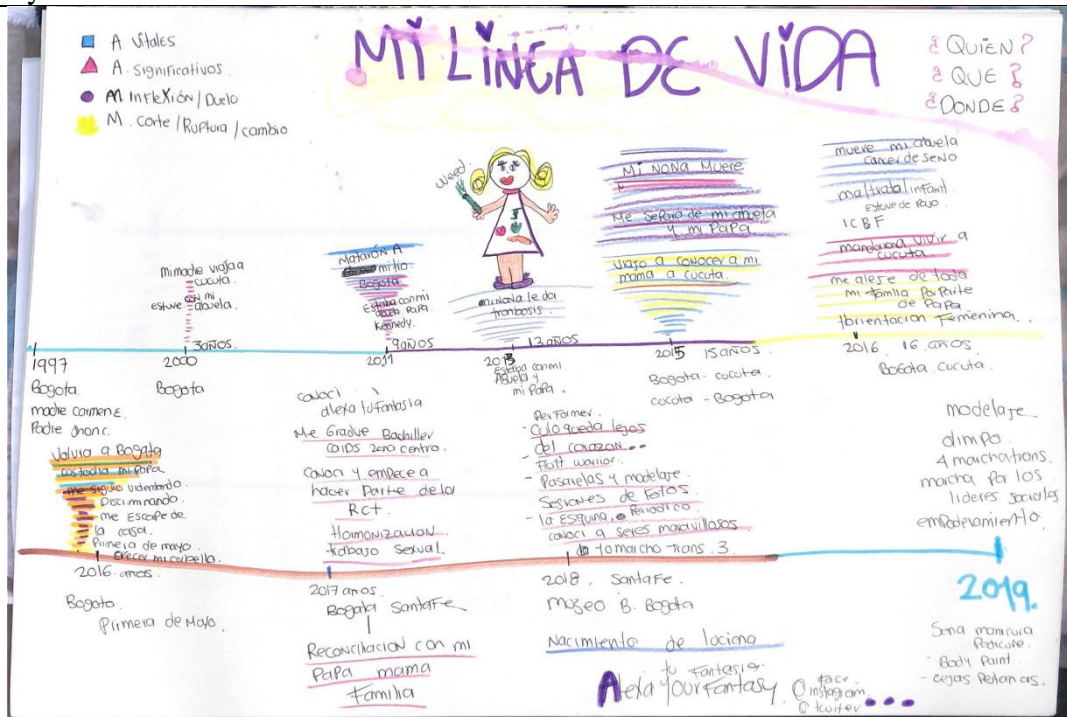 MI LiNEA DE ViDA
A Vitales
A. significativos.
M InfleXión/Duelo
M. corte/Ruptura/cambio
¿QUIÉN?
¿QUE?
¿DONDE?
mi madre viaja a
cucuta.
estuve con mi
abuela.
3 AÑOS.
Matarón A
mi tio.
Bogota
Estaba con mi
Papa.
Kennedy.
9 AÑOS
weed
mi Nona le da
trombosis.
13 AÑOS
Mi NONA Muere
Me separo de mi abuela
y mi PaPa.
viajo a conocer a mi
mama a cucuta.
muere mi abuela
cancer de seno
maltrato infantil.
ICBF
mandaron a vivir a
cucuta
me aleje de toda
mi familia Por Parte
de Papa
orientacion Femenina.
1997
Bogota.
madre carmen E.
Padre
2000
Bogota
2011
2013
Estaba con mi
Abuela y
mi Papa.
2015 15 AÑOS.
Bogota - cucuta.
cocota - Bogota
2016 16 años
Bogota. cucuta.
Volvia a Bogota
custodia mi PaPa
me siguio violentando
Discriminando.
me Escape de
la casa.
Primera de mayo.
crecer mi cabello.
2016. años.
Bogoto.
Primera de Mayo.
conoci
alexa tu fantasia
Me Gradue Bachiller
zona centro.
conoci y empece a
hacer Parte de la
RCT.
Hormonizacion
trabajo sexual.
2017 años.
Bogota Santa Fe
Reconciliacion con mi
PaPa mama
Familia
Performer.
- Culo queda lejos
del corazon...
- Hott warrior.
- Pasarelas y modelaje.
Sesiones de Fotos.
- la Esquina, Periodico
conoci a seres maravillosos
Yo marcho Trans. 3.
2018. Santa Fe.
museo B. Bogota
Nacimiento de luciana
tu Fantasia.
Alexa Your Fantasy.
face.
@instagram.
@twiter
modelaje
dimpo.
4 marcha trans.
marcha Por los
lideres sociales
empoderamiento.
2019.
Sena manicura
Pedicure.
- Body Paint.